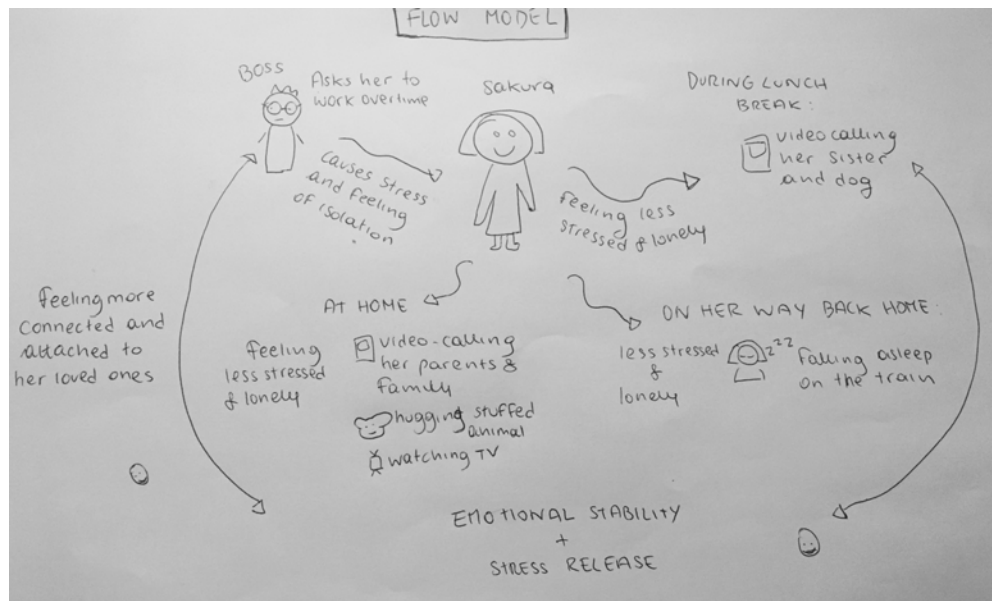 FLOW MODEL
BOSS
Asks her to
work overtime
causes stress
and feeling
of isolation
Sakura
feeling less
stressed & lonely
DURING LUNCH
BREAK:
video calling
her sister
and dog
feeling more
connected and
attached to
her loved ones
AT HOME
feeling
less stressed
& lonely
video-calling
her parents &
family
hugging stuffed
animal
watching TV
ON HER WAY BACK HOME:
less stressed
&
lonely
zzz
falling asleep
on the train
EMOTIONAL STABILITY
+
STRESS RELEASE